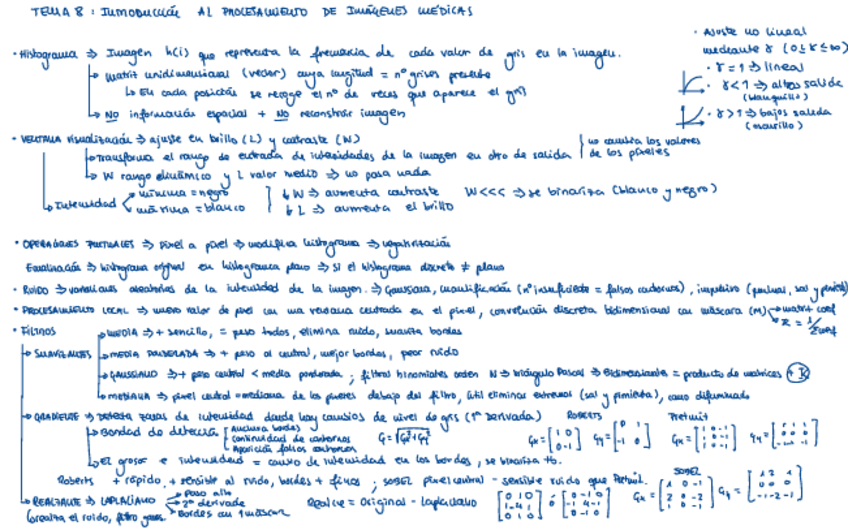 TEMA 8: INTRODUCCIÓN AL PROCESAMIENTO DE IMÁGENES MÉDICAS
· Histograma ⇒ Imagen h(i) que representa la frecuencia de cada valor de gris en la imagen.
↳ matriz unidimensional (vector) cuya longitud = nº grises presente
↳ En cada posición se recoge el nº de veces que aparece el gris
↳ NO información espacial + NO reconstruir imagen
· Ajuste no lineal
mediante γ (0 ≤ γ ≤ ∞)
· γ = 1 ⇒ lineal
· γ < 1 ⇒ altos salida
(blanquillo)
· γ > 1 ⇒ bajos salida
(oscurillo)
· VENTANA visualización ⇒ ajuste en brillo (L) y contraste (W)
↳ transforma el rango de entrada de intensidades de la imagen en otro de salida | no cambia los valores
de los píxeles
↳ W rango dinámico y L valor medio ⇒ no pasa nada
↳ Intensidad mínima = negro
máxima = blanco
↓ W ⇒ aumenta contraste W<<< ⇒ se binariza (blanco y negro)
↓ L ⇒ aumenta el brillo
· OPERADORES PUNTUALES ⇒ pixel a pixel ⇒ modifica histograma ⇒ negativización
Ecualización ⇒ histograma original en histograma plano ⇒ si el histograma discreto ≠ plano
· RUIDO ⇒ variaciones aleatorias de la intensidad de la imagen. ⇒ Gaussiana, cuantificación (nº insuficiente = falsos contornos), impulsivo (puntual, sal y pimienta)
· PROCESAMIENTO LOCAL ⇒ nuevo valor de pixel con una ventana centrada en el pixel, convolución discreta bidimensional con máscara (M) → matriz coef
R = 1/Σcoef
· FILTROS
↳ SUAVIZANTES
↳ MEDIA ⇒ + sencillo, = peso todos, elimina ruido, suaviza bordes
↳ MEDIA PONDERADA ⇒ + peso al central, mejor bordes, peor ruido
↳ GAUSSIANO ⇒ + peso central < media ponderada ; filtros binomiales orden N ⇒ triángulo Pascal ⇒ Bidimensionales = producto de matrices + R
↳ MEDIANA ⇒ pixel central = mediana de los pixeles debajo del filtro, útil eliminar extremos (sal y pimienta), como difuminado
↳ GRADIENTE ⇒ Detecta zonas de intensidad donde hay cambios de nivel de gris (1ª derivada)
↳ Bondad de detección Anchura bordes
Continuidad de contornos
Aparición falsos contornos
G = √Gx²+Gy²
ROBERTS
Gx = [1 0
0 -1] Gy = [0 1
-1 0]
Prewitt
Gx = [1 0 -1
1 0 -1
1 0 -1] Gy = [1 1 1
0 0 0
-1 -1 -1]
↳ El grosor e intensidad = cambio de intensidad en los bordes, se binariza
Roberts + rápido, + sensible al ruido, bordes + finos ; SOBEL pixel central - sensible ruido que Prewitt.
SOBEL
Gx = [1 0 -1
2 0 -2
1 0 -1] Gy = [1 2 1
0 0 0
-1 -2 -1]
↳ REALZANTE ⇒ LAPLACIANO → paso alto
→ 2ª derivada
→ Bordes con 1 máscara
(realza el ruido, filtro gauss.
Realce = Original - Laplaciano
[0 1 0
1 -4 1
0 1 0] ó [0 -1 0
-1 4 -1
0 -1 0]